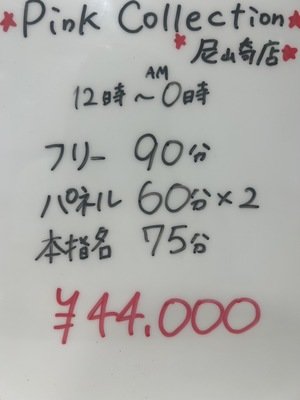 Pink Collection
尼崎店
AM
12時～0時
フリー 90分
パネル 60分×2
本指名 75分
¥44.000